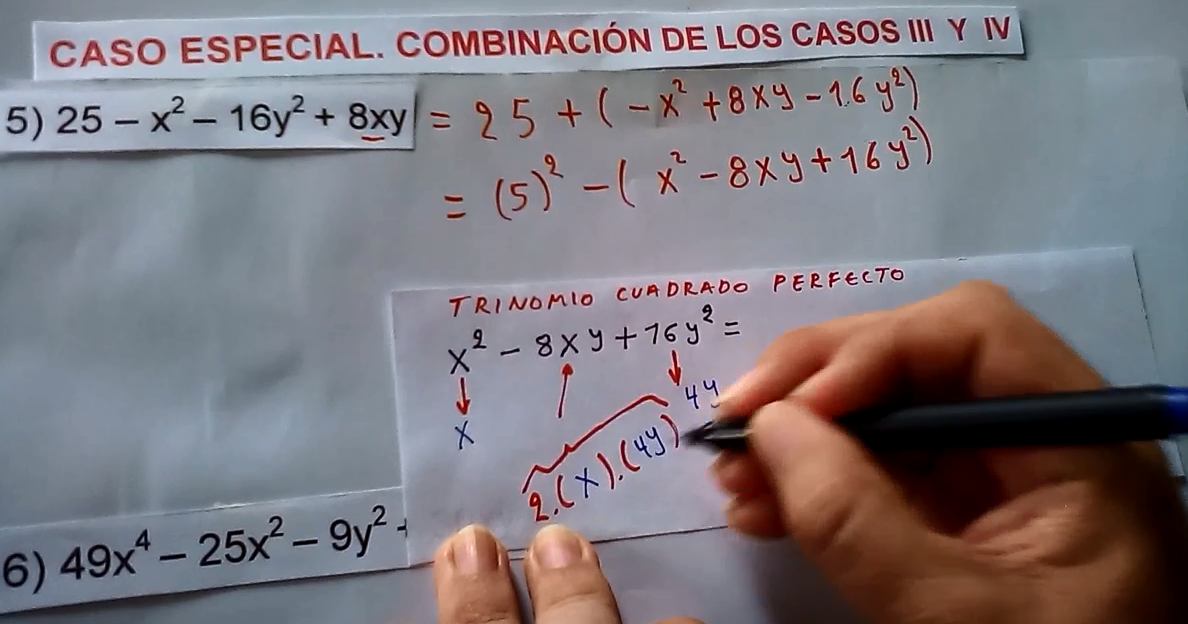 CASO ESPECIAL. COMBINACIÓN DE LOS CASOS III Y IV
5) 25 − x² − 16y² + 8xy = 25 + (−x² + 8xy − 16y²)
= (5)² − (x² − 8xy + 16y²)
TRINOMIO CUADRADO PERFECTO
x² − 8xy + 16y² =
x
4y
2.(x).(4y)
6) 49x⁴ − 25x² − 9y²